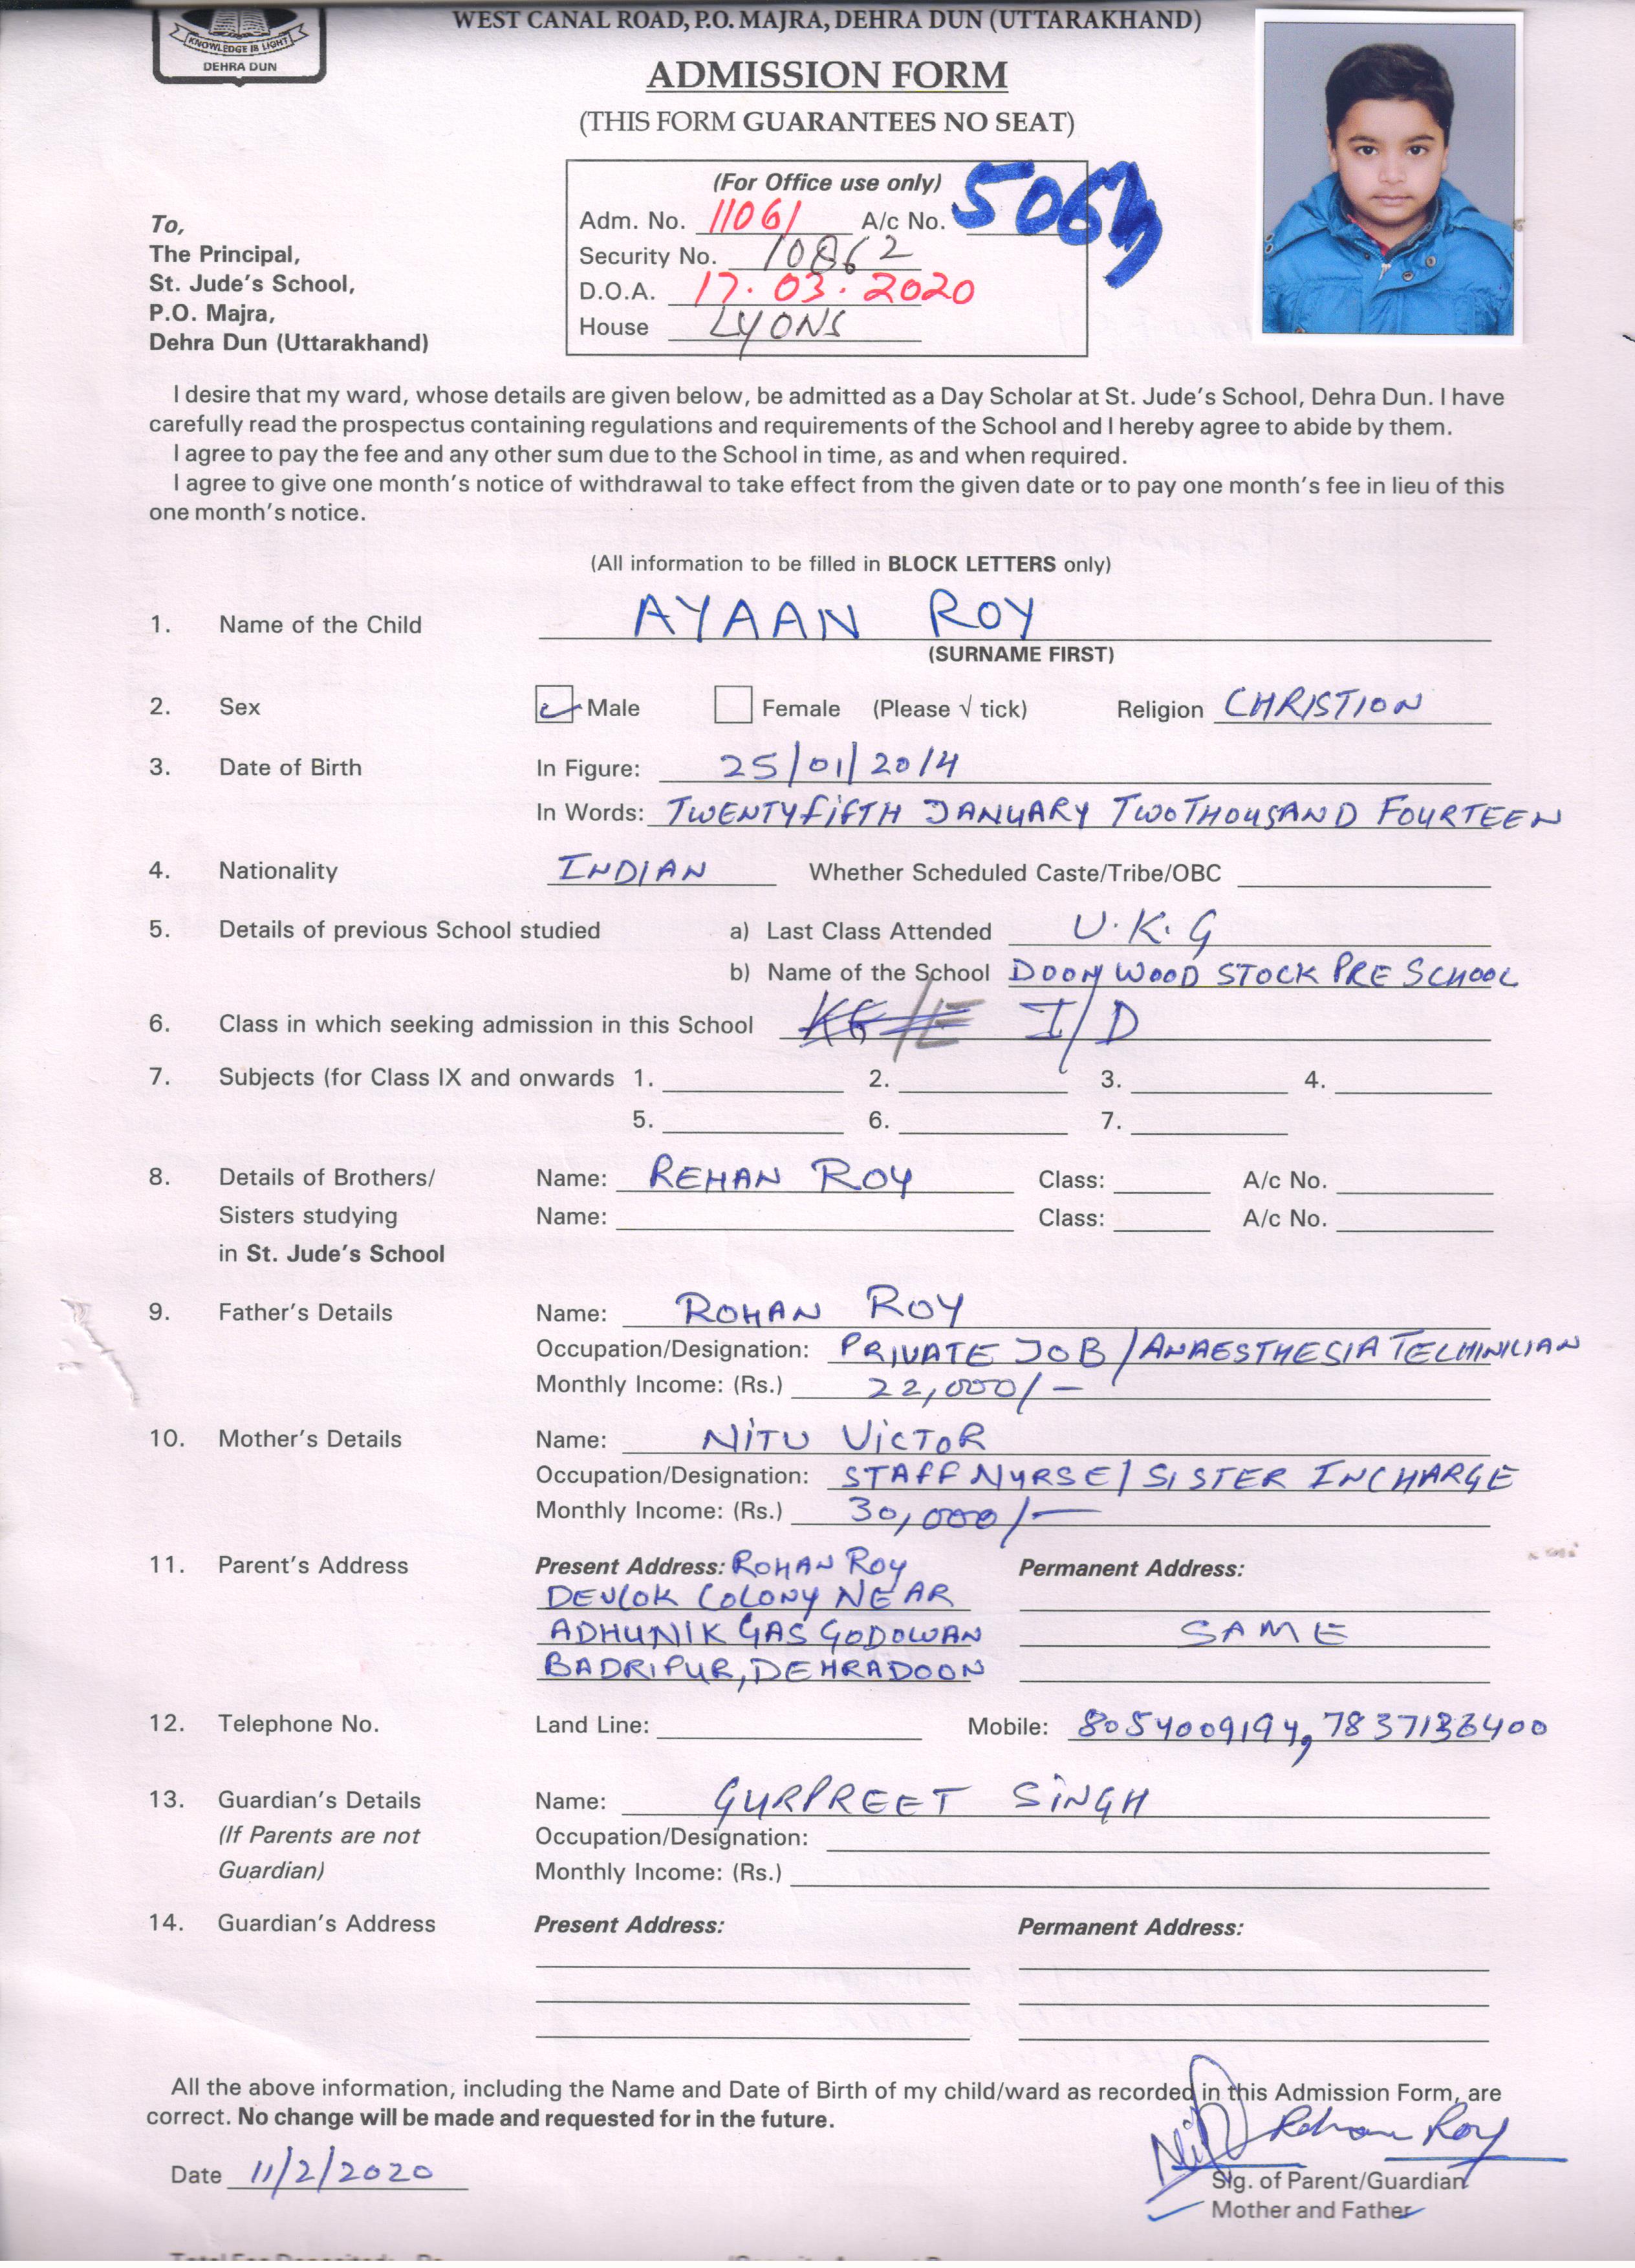 WEST CANAL ROAD, P.O. MAJRA, DEHRA DUN (UTTARAKHAND)
KNOWLEDGE IS LIGHT
DEHRA DUN
ADMISSION FORM
(THIS FORM GUARANTEES NO SEAT)
(For Office use only)
Adm. No. 11061 A/c No.
Security No. 10862
D.O.A. 17.03.2020
House LYONS
To,
The Principal,
St. Jude's School,
P.O. Majra,
Dehra Dun (Uttarakhand)
I desire that my ward, whose details are given below, be admitted as a Day Scholar at St. Jude's School, Dehra Dun. I have
carefully read the prospectus containing regulations and requirements of the School and I hereby agree to abide by them.
I agree to pay the fee and any other sum due to the School in time, as and when required.
I agree to give one month's notice of withdrawal to take effect from the given date or to pay one month's fee in lieu of this
one month's notice.
(All information to be filled in BLOCK LETTERS only)
1. Name of the Child AYAAN ROY
(SURNAME FIRST)
2. Sex Male Female (Please √ tick) Religion CHRISTION
3. Date of Birth In Figure: 25/01/2014
In Words: TWENTYFIFTH JANUARY TWOTHOUSAND FOURTEEN
4. Nationality INDIAN Whether Scheduled Caste/Tribe/OBC
5. Details of previous School studied a) Last Class Attended U.K.G
b) Name of the School DOON WOOD STOCK PRE SCHOOL
6. Class in which seeking admission in this School I/D
7. Subjects (for Class IX and onwards 1. 2. 3. 4.
5. 6. 7.
8. Details of Brothers/ Name: REHAN ROY Class: A/c No.
Sisters studying Name: Class: A/c No.
in St. Jude's School
9. Father's Details Name: ROHAN ROY
Occupation/Designation: PRIVATE JOB / ANAESTHESIA TECHINICIAN
Monthly Income: (Rs.) 22,000/-
10. Mother's Details Name: NITU VICTOR
Occupation/Designation: STAFF NURSE / SISTER INCHARGE
Monthly Income: (Rs.) 30,000/-
11. Parent's Address Present Address: ROHAN ROY Permanent Address:
DEVLOK COLONY NEAR
ADHUNIK GAS GODOWAN SAME
BADRIPUR, DEHRADOON
12. Telephone No. Land Line: Mobile: 8054009194, 7837136400
13. Guardian's Details Name: GURPREET SINGH
(If Parents are not Occupation/Designation:
Guardian) Monthly Income: (Rs.)
14. Guardian's Address Present Address: Permanent Address:
All the above information, including the Name and Date of Birth of my child/ward as recorded in this Admission Form, are
correct. No change will be made and requested for in the future.
Rohan Roy
Date 11/2/2020
Sig. of Parent/Guardian
Mother and Father